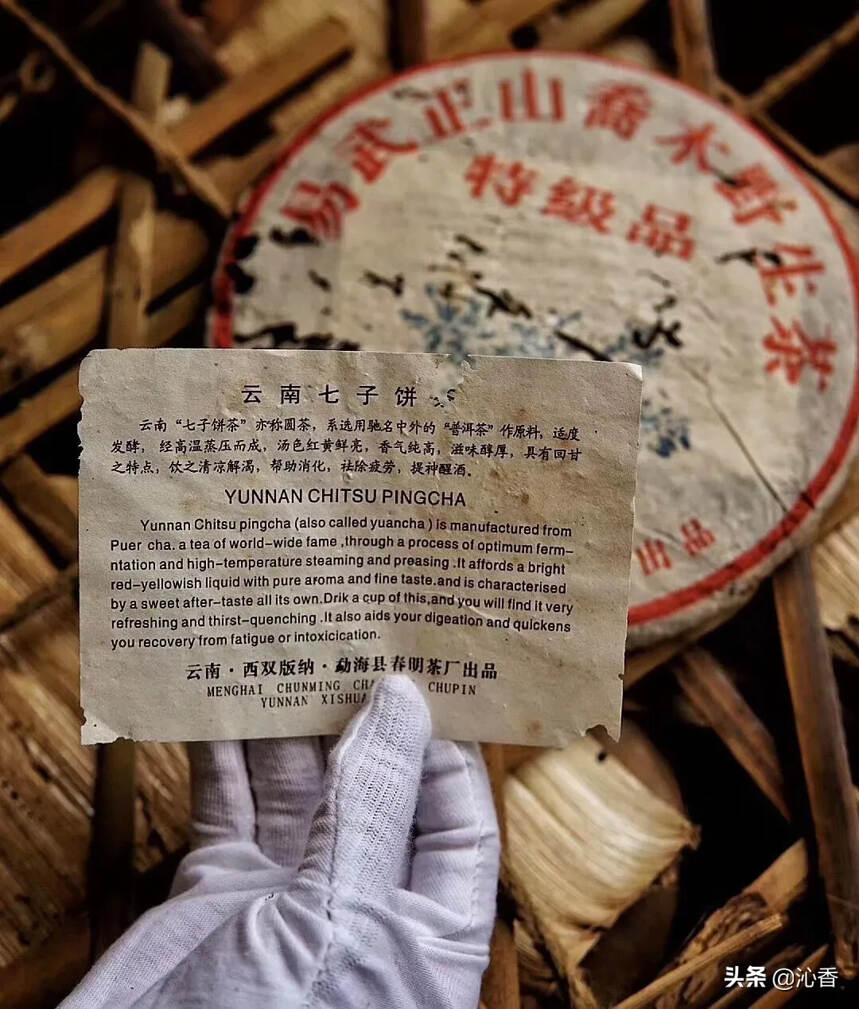 易武正山喬木野生茶
特級品
云南七子饼
云南“七子饼茶”亦称圆茶，系选用驰名中外的“普洱茶”作原料，适度
发酵，经高温蒸压而成，汤色红黄鲜亮，香气纯高，滋味醇厚，具有回甘
之特点，饮之清凉解渴，帮助消化，祛除疲劳，提神醒酒。
YUNNAN CHITSU PINGCHA
Yunnan Chitsu pingcha (also called yuancha ) is manufactured from
Puer cha. a tea of world-wide fame ,through a process of optimum ferm-
ntation and high-temperature steaming and preasing .It affords a bright
red-yellowish liquid with pure aroma and fine taste.and is characterised
by a sweet after-taste all its own.Drik a cup of this,and you will find it very
refreshing and thirst-quenching .It also aids your digeation and quickens
you recovery from fatigue or intoxicication.
云南·西双版纳·勐海县春明茶厂出品
MENGHAI CHUNMING CHUPIN
YUNNAN
出品
头条 @沁香